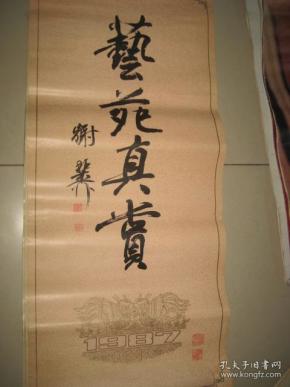 藝苑真赏
謝稚
1987
孔夫子旧书网
www.kongfz.com